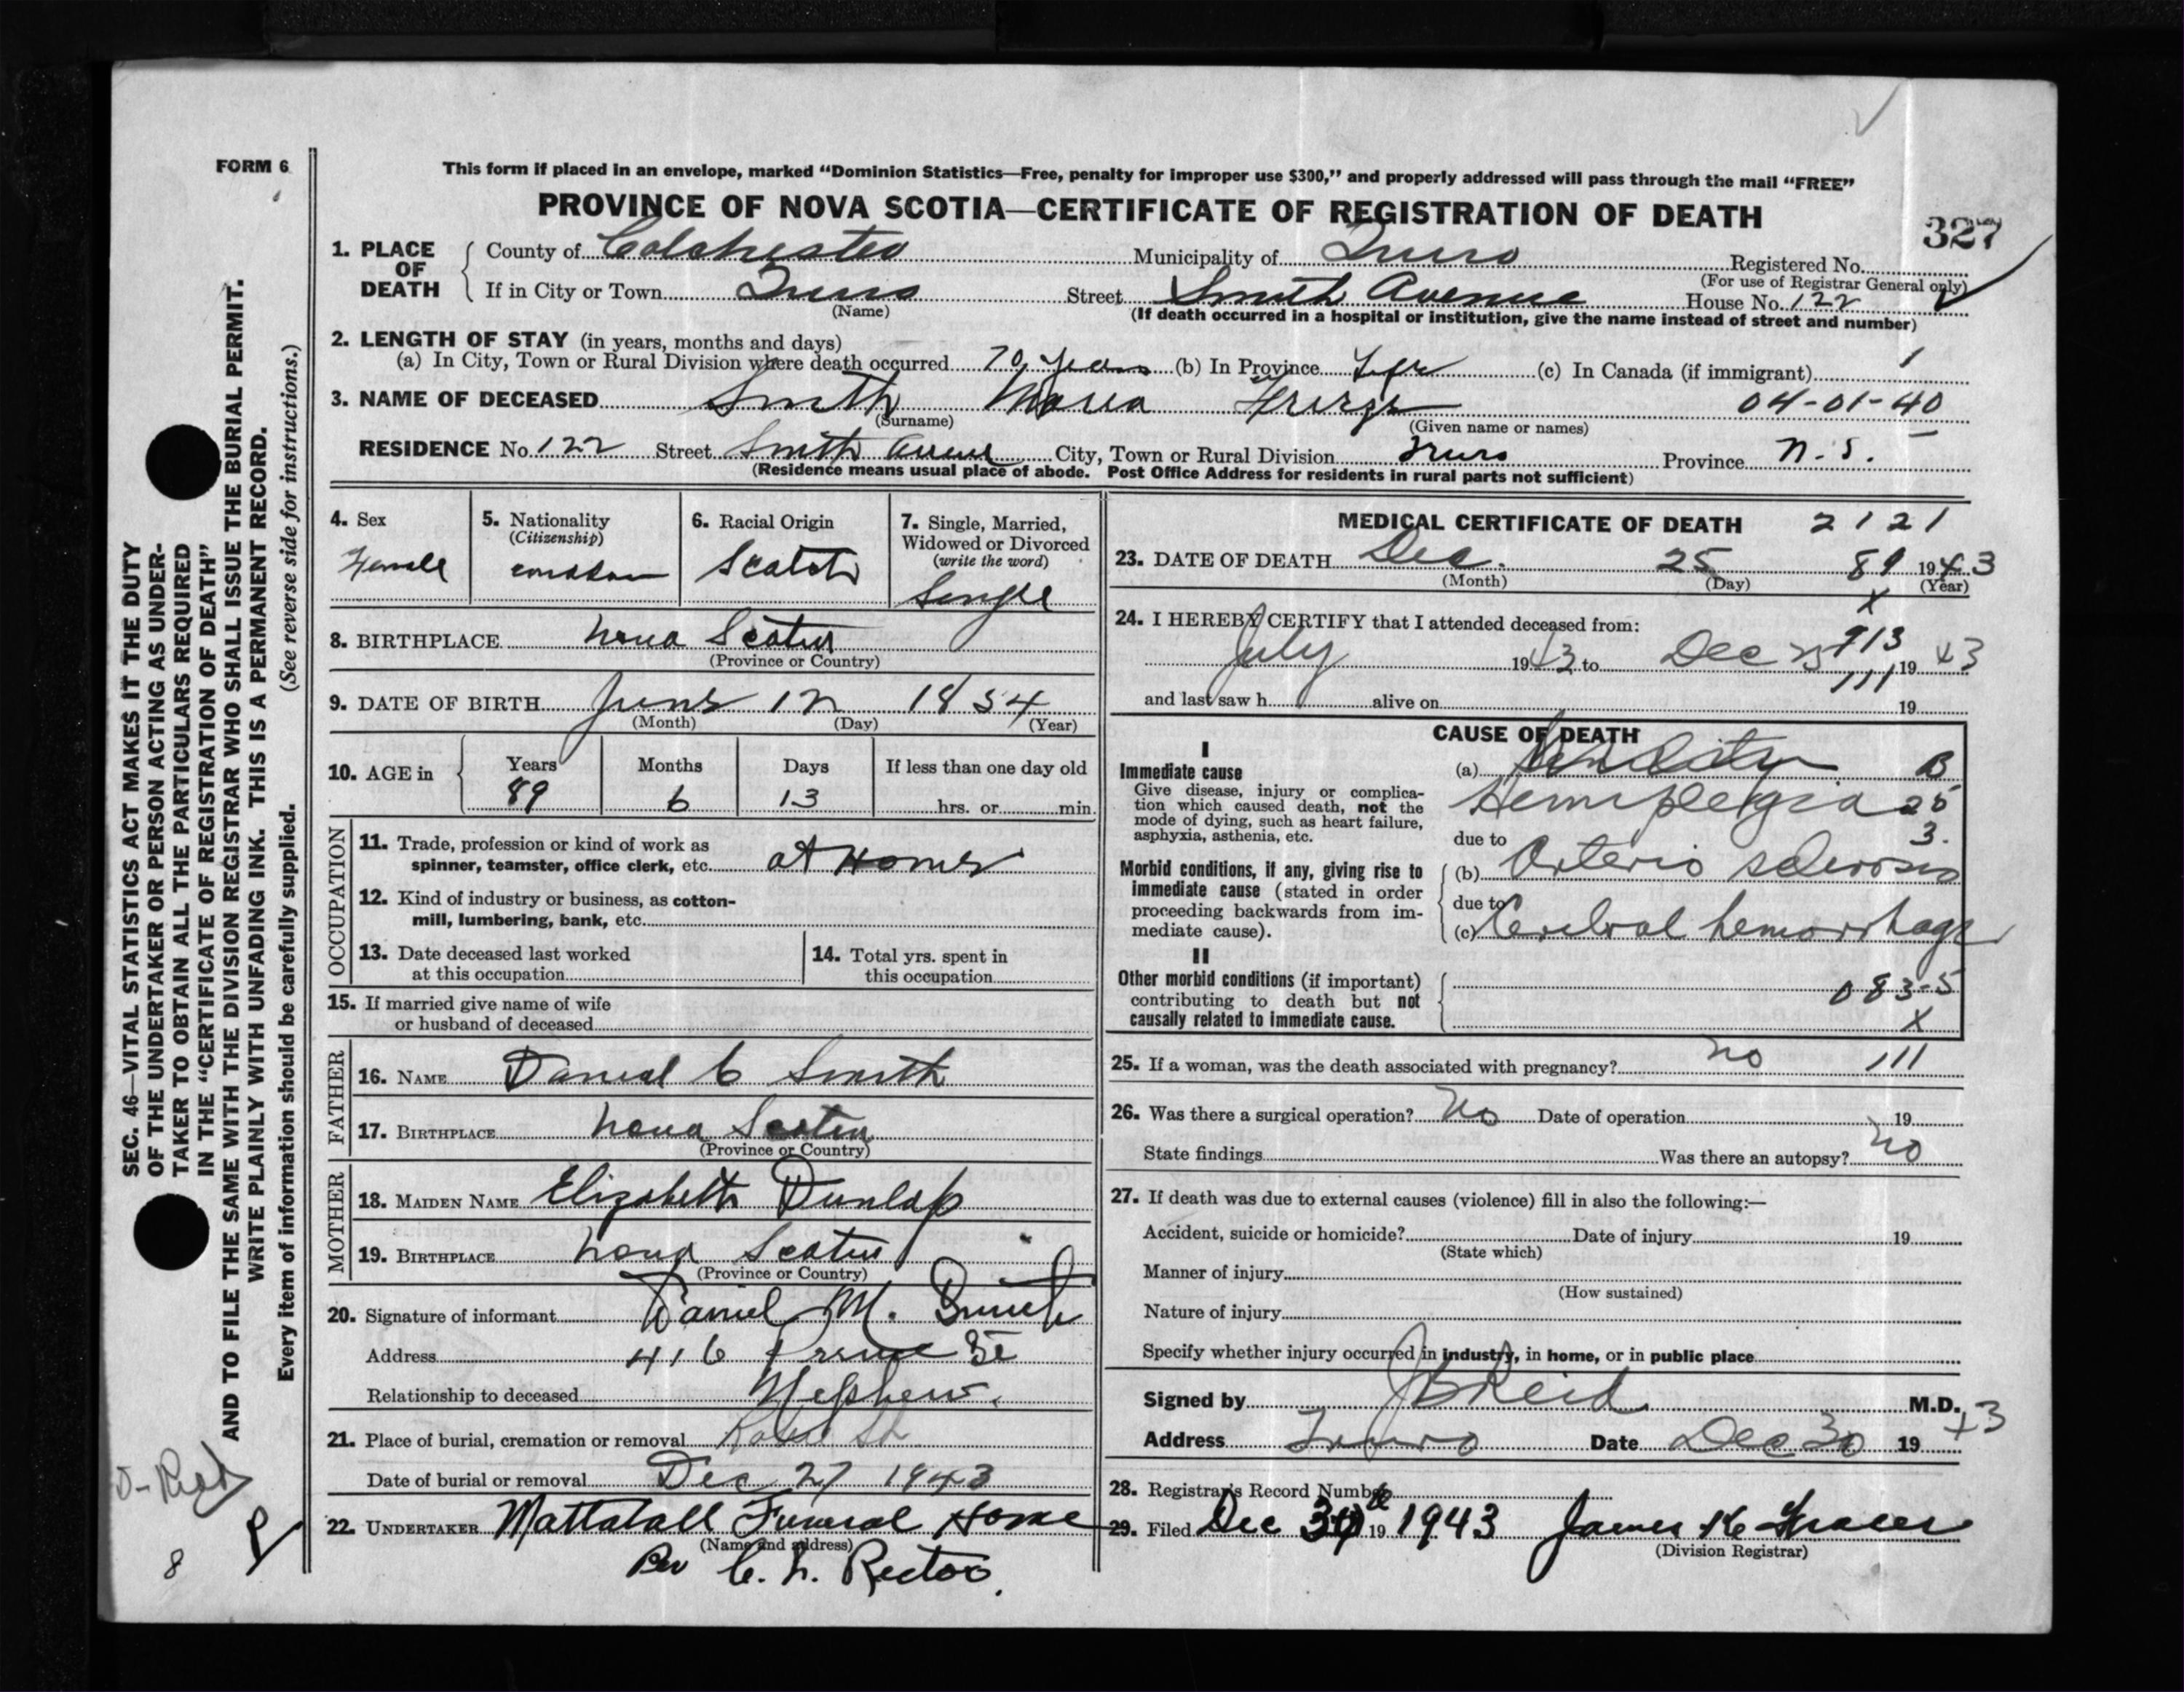 FORM 6
This form if placed in an envelope, marked “Dominion Statistics—Free, penalty for improper use $300,” and properly addressed will pass through the mail “FREE”
PROVINCE OF NOVA SCOTIA—CERTIFICATE OF REGISTRATION OF DEATH
327
1. PLACE OF DEATH County of Colchester Municipality of Truro Registered No.
(For use of Registrar General only)
If in City or Town Truro Street Smith Avenue House No. 122
(Name) (If death occurred in a hospital or institution, give the name instead of street and number)
2. LENGTH OF STAY (in years, months and days)
(a) In City, Town or Rural Division where death occurred 70 years (b) In Province Life (c) In Canada (if immigrant) 1
3. NAME OF DECEASED Smith Maria 04-01-40
(Surname) (Given name or names)
RESIDENCE No. 122 Street Smith Avenue City, Town or Rural Division Truro Province N.S.
(Residence means usual place of abode. Post Office Address for residents in rural parts not sufficient)
4. Sex
Female
5. Nationality
(Citizenship)
Canadian
6. Racial Origin
Scotch
7. Single, Married,
Widowed or Divorced
(write the word)
Single
8. BIRTHPLACE Nova Scotia
(Province or Country)
9. DATE OF BIRTH June 12 1854
(Month) (Day) (Year)
10. AGE in Years Months Days If less than one day old
89 6 13 hrs. or min.
OCCUPATION
11. Trade, profession or kind of work as
spinner, teamster, office clerk, etc. at Home
12. Kind of industry or business, as cotton-
mill, lumbering, bank, etc.
13. Date deceased last worked
at this occupation
14. Total yrs. spent in
this occupation
15. If married give name of wife
or husband of deceased
FATHER
16. NAME Daniel C Smith
17. BIRTHPLACE Nova Scotia
(Province or Country)
MOTHER
18. MAIDEN NAME Elizabeth Dunlap
19. BIRTHPLACE Nova Scotia
(Province or Country)
20. Signature of informant Daniel M. Smith
Address 416 Prince St
Relationship to deceased Nephew.
21. Place of burial, cremation or removal Robie St
Date of burial or removal Dec 27 1943
22. UNDERTAKER Mattatall Funeral Home
(Name and address)
Per C. L. Rector.
MEDICAL CERTIFICATE OF DEATH 2121
23. DATE OF DEATH Dec. 25 89 1943
(Month) (Day) (Year)
X
24. I HEREBY CERTIFY that I attended deceased from:
913
July 1943 to Dec 25 19 43
111
and last saw h alive on 19
CAUSE OF DEATH
I
Immediate cause
Give disease, injury or complica-
tion which caused death, not the
mode of dying, such as heart failure,
asphyxia, asthenia, etc.
(a) B
Hemiplegia 25
3.
due to
Morbid conditions, if any, giving rise to
immediate cause (stated in order
proceeding backwards from im-
mediate cause).
(b) Arterio sclerosis
due to
(c) Cerebral hemorrhage
II
Other morbid conditions (if important)
contributing to death but not
causally related to immediate cause.
083-5
X
25. If a woman, was the death associated with pregnancy? no 111
26. Was there a surgical operation? No Date of operation 19
State findings Was there an autopsy? no
27. If death was due to external causes (violence) fill in also the following:—
Accident, suicide or homicide? Date of injury 19
(State which)
Manner of injury
(How sustained)
Nature of injury
Specify whether injury occurred in industry, in home, or in public place
Signed by J B Reid M.D.
Address Truro Date Dec 30 19 43
28. Registrar's Record Number
29. Filed Dec 30 19 1943 James
(Division Registrar)
SEC. 46—VITAL STATISTICS ACT MAKES IT THE DUTY
OF THE UNDERTAKER OR PERSON ACTING AS UNDER-
TAKER TO OBTAIN ALL THE PARTICULARS REQUIRED
IN THE “CERTIFICATE OF REGISTRATION OF DEATH”
AND TO FILE THE SAME WITH THE DIVISION REGISTRAR WHO SHALL ISSUE THE BURIAL PERMIT.
WRITE PLAINLY WITH UNFADING INK. THIS IS A PERMANENT RECORD.
Every item of information should be carefully supplied. (See reverse side for instructions.)
8